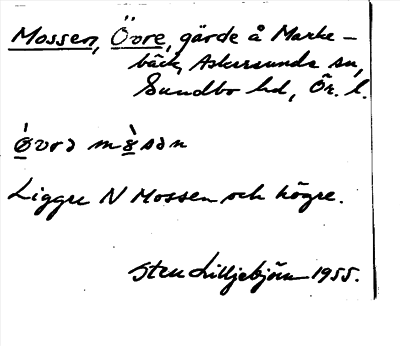 Mossen, Övre, gärde å Marke-
bäck, Askersunds sn,
Sundbo hd, Ör. l.
ø̀vrə mø̀sən
Ligger N Mossen och högre.
Sten Lilljebjörn 1955.